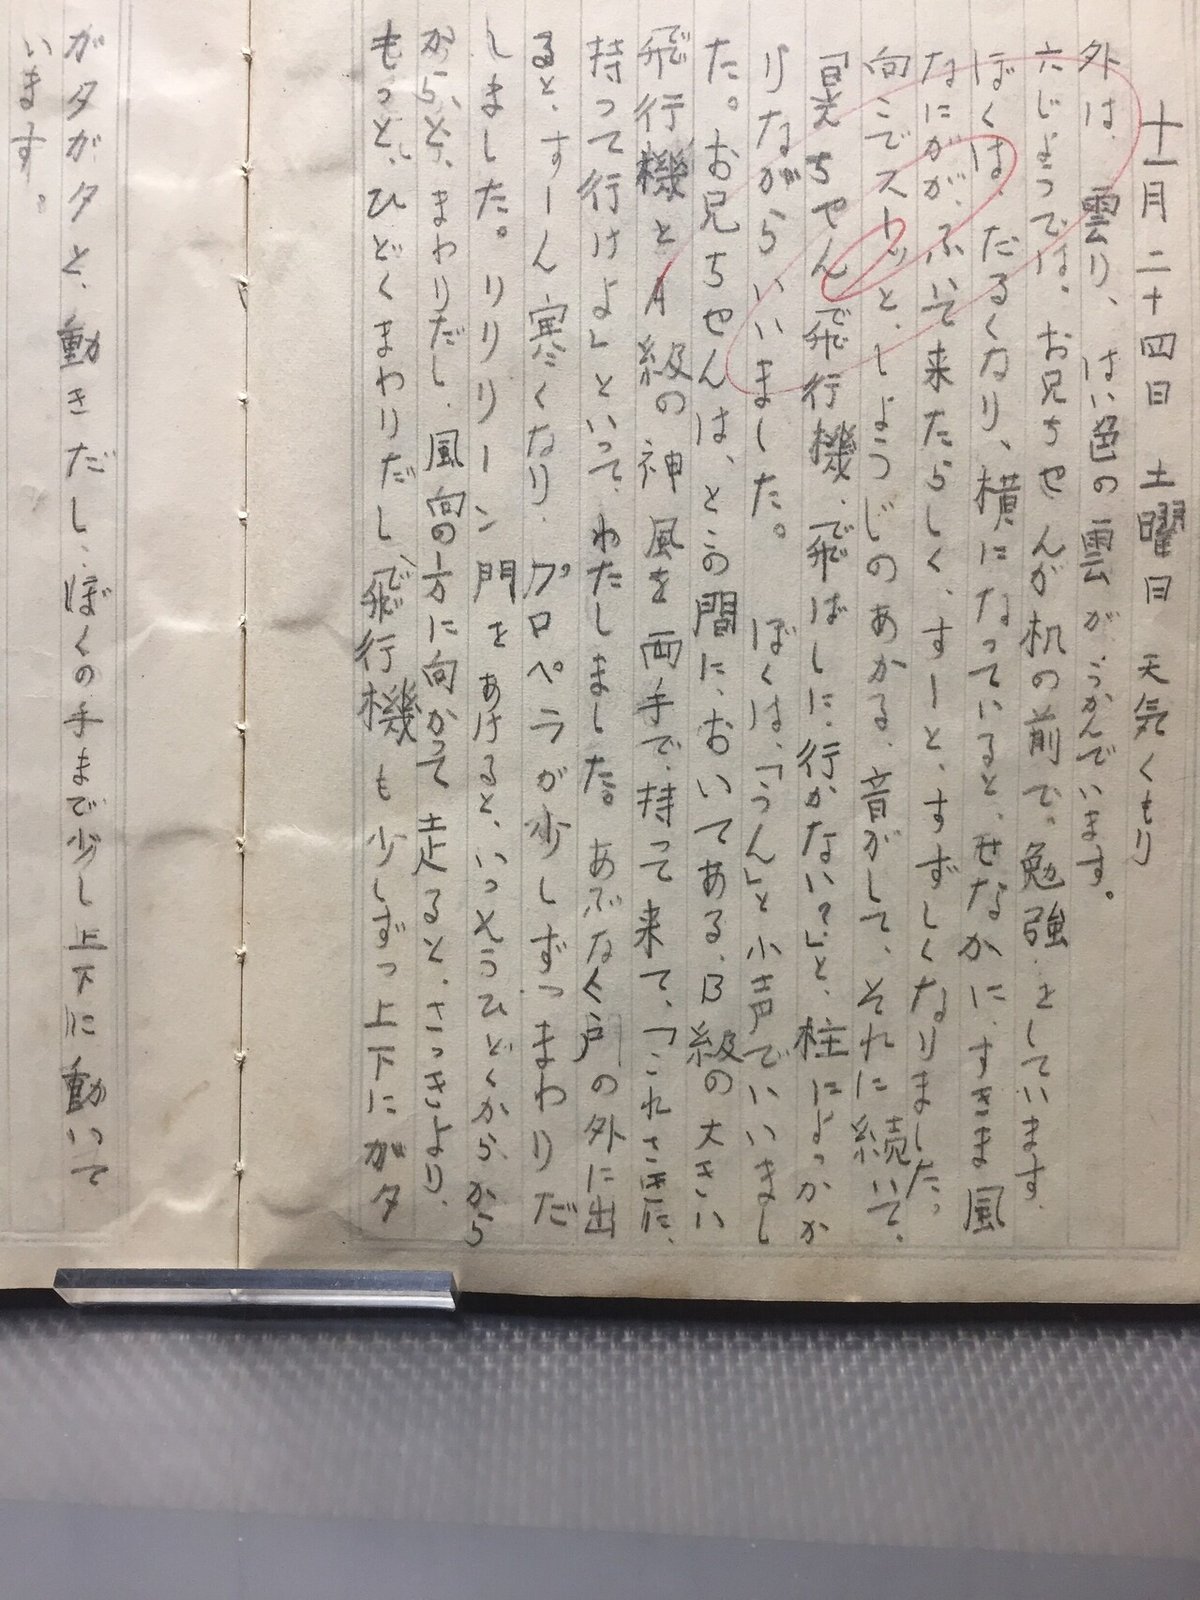 十一月二十四日 土曜日 天気くもり
外は、雲り、はい色の雲が、うかんでいます。
六じょうでは、お兄ちゃんが机の前で、勉強をしています。
ぼくは、だるくなり、横になっていると、せなかに、すきま風
なにが、ふいて来たらしく、すーと、すずしくなりました。
向こでストッと、しょうじのあかる、音がして、それに続いて、
「晃ちゃん飛行機、飛ばしに、行かない?」と、柱によっかか
りながらいいました。 ぼくは、「うん」と小声でいいまし
た。お兄ちゃんは、とこの間に、おいてある、B級の大きい
飛行機とA級の神風を両手で、持って来て、「これさきに、
持って行けよ」といって、わたしました。あぶなく戸の外に出
ると、すーん寒くなり、プロペラが少しずつまわりだ
しました。リリリーン門をあけると、いっそうひどくから、から
から、と、まわりだし、風向の方に向かって走ると、さっきより、
もっと、ひどくまわりだし、飛行機も少しずつ上下にガタ
ガタガタと、動きだし、ぼくの手まで少し上下に動いて
います。